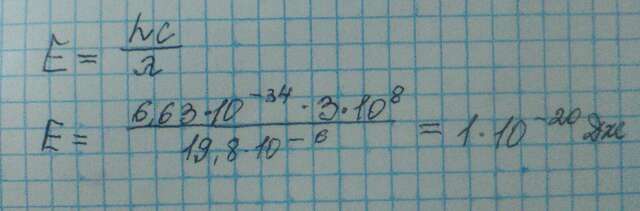 E = hc/λ
E = 6,63·10⁻³⁴·3·10⁸/19,8·10⁻⁶ = 1·10⁻²⁰ Дж